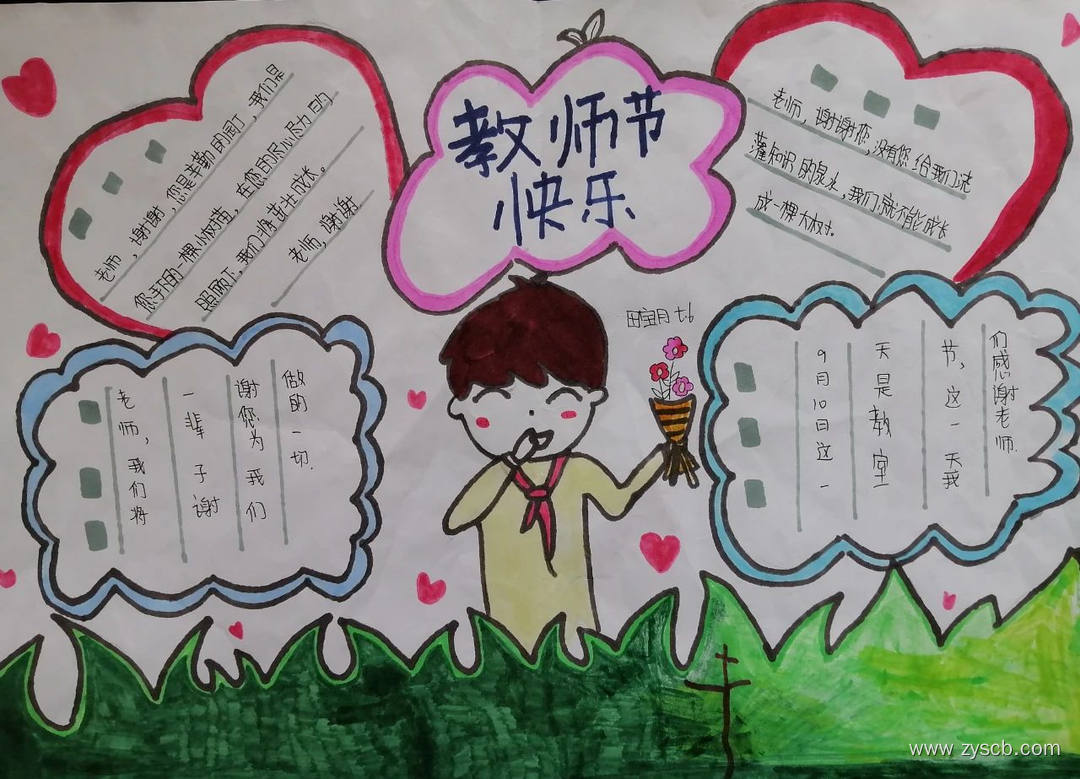 教师节
快乐
老师，谢谢，您是辛勤的园丁，我们是
您手下的一棵小树苗。在您的尽心尽力的
照顾下，我们将茁壮成长。
老师，谢谢
老师，谢谢您，没有您给我们浇
灌知识的泉水，我们就不能成长
成一棵大树。
田宝月 七.6
老师，我们将
一辈子谢
谢您为我们
做的一切.
9月10日这一
天是教室
节，这一天我
们感谢老师.
www.zyscb.com